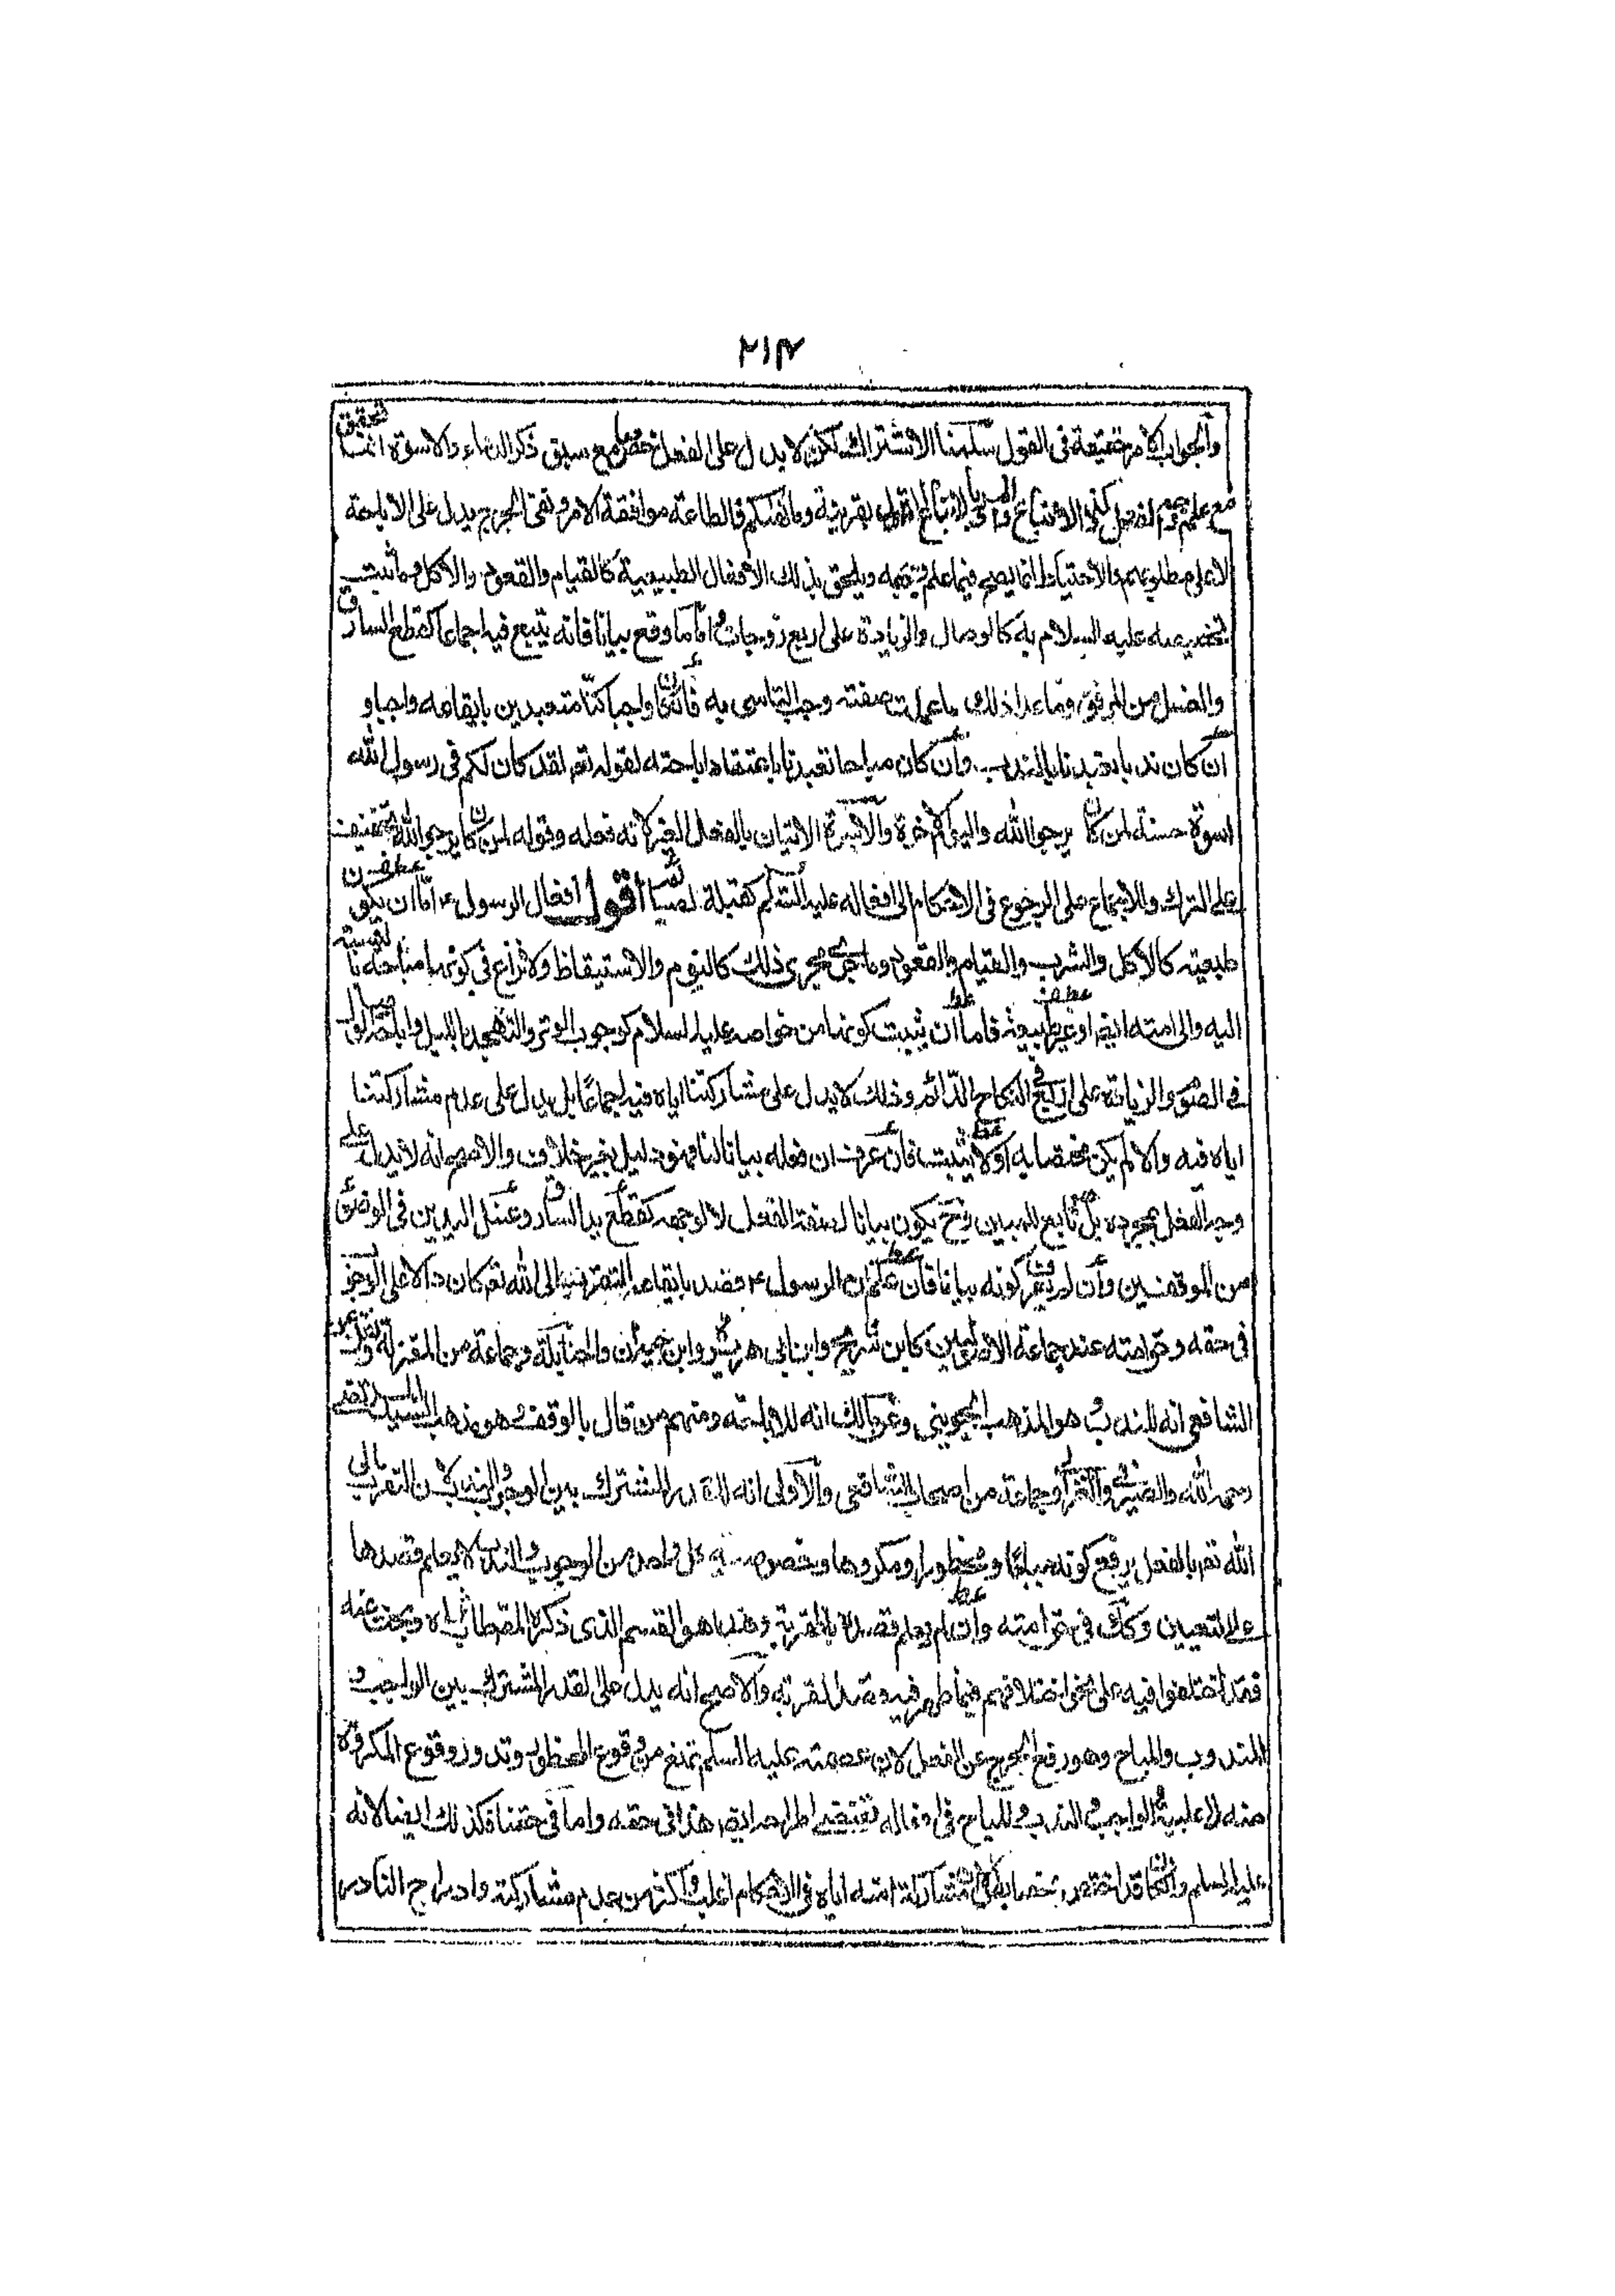 ٢١٣
والجواب الامر حقيقة فى القول سلمنا الاشتراك لكن لا يدل على الفعل مع سبق ذكر الدعاء والاسوة انما تتحقق
مع علم الاتباع الاتباع فى القول بقرينة وما نهيكم فالطاعة موافقة الامر ونفى الحرج يدل على الاباحة
والاحتياط انما يصح فيما علم ويلحق بذلك الافعال الطبيعية كالقيام والقعود والاكل وما ثبت
تخصيصه عليه السلام به كالوصال والزيادة على اربع زوجات واما ما وقع بيانا فانه يتبع فيه اجماعا كقطع السارق
والغسل من المرفق وما عدا ذلك ما علمت صفته وجب التاسى به فان كان واجبا كنا متعبدين بايقاعه واجبا و
ان كان ندبا تعبدنا بالندب وان كان مباحا تعبدنا باعتقاد اباحته لقوله تعم لقد كان لكم فى رسول الله
اسوة حسنة لمن كان يرجو الله واليوم الاخر والاسوة الاتيان بالفعل الغير لانه فعله وقوله لمن كان يرجو الله تخويف
على الترك وللاجماع على الرجوع فى الاحكام الى افعاله عليه السلم كقبلة الصايم اقول افعال الرسول ع اما ان يكون
طبيعية كالاكل والشرب والقيام والقعود وما جرى مجرى ذلك كالنوم والاستيقاظ ولا نزاع فى كونها مباحة بالنسبة
اليه والى امته ايض او غير طبيعية فاما ان يثبت كونها من خواصه عليه السلام كوجوب الوتر والتهجد بالليل واباحة الوصال
فى الصوم والزيادة على اربع فى النكاح الدائم وذلك لا يدل على مشاركتنا اياه فيه اجماعا بل يدل على عدم مشاركتنا
اياه فيه والا لم يكن مختصا به او لا يثبت فان عرف ان فعله بيانا لنا فهو دليل بغير خلاف والاصح انه لا يدل على
وجه الفعل بمجرده بل تابع للمبين وح يكون بيانا لصفة الفعل لا لوجهه كقطع يد السارق وغسل اليدين فى الوضوء
من المرفقين وان لم يعرف كونه بيانا فان علم ان الرسول ع قصد بايقاعه التقرب الى الله تعم كان دالا على الوجوب
فى حقه وحق امته عند جماعة الاصوليين كابن شريح وابن ابى هريرة وابن خيران والحنابلة وجماعة من المعتزلة ونقل عن
الشافعى انه للندب وهو المذهب الجوينى وعن مالك انه للاباحة ومنهم من قال بالوقف وهو مذهب السيد المرتضى
رحمه الله والصيرفى والغزالى وجماعة من اصحاب الشافعى والاولى انه للقدر المشترك بين الوجوب والندب لان التقرب الى
الله تعم بالفعل يرفع كونه مباحا ومحظورا ومكروها وخصوصية كل واحد من الوجوب والندب لا يعلم قصدها
على التعيين وكذلك فى حق امته وان لم يعلم قصد القربة وهذا هو القسم الذى ذكره المصنف وبحث عنه
فقد اختلفوا فيه على نحو اختلافهم فيما ظهر فيه قصد القربة والاصح انه يدل على القدر المشترك بين الواجب و
المندوب والمباح وهو رفع الحرج عن الفعل لان عصمته عليه السلم تمنع من وقوع المحظور وندور وقوع المكروه
منه لاغلبية الواجب والندب والمباح فى افعاله تقتضى هذا فى حقه واما فى حقنا فكذلك ايضا لانه
عليه السلم وان كان قد اختص بخصايص لكن مشاركة امته اياه فى الاحكام اغلب واكثر من عدم مشاركته وادراج النادر